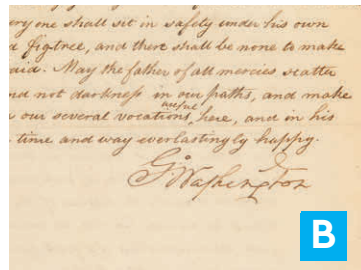 ery one shall sit in safety under his own
figtree, and there shall be none to make
aid. May the father of all mercies scatter
nd not darkness in our paths, and make
our several vocations useful here, and in his
time and way everlastingly happy.
G. Washington
B